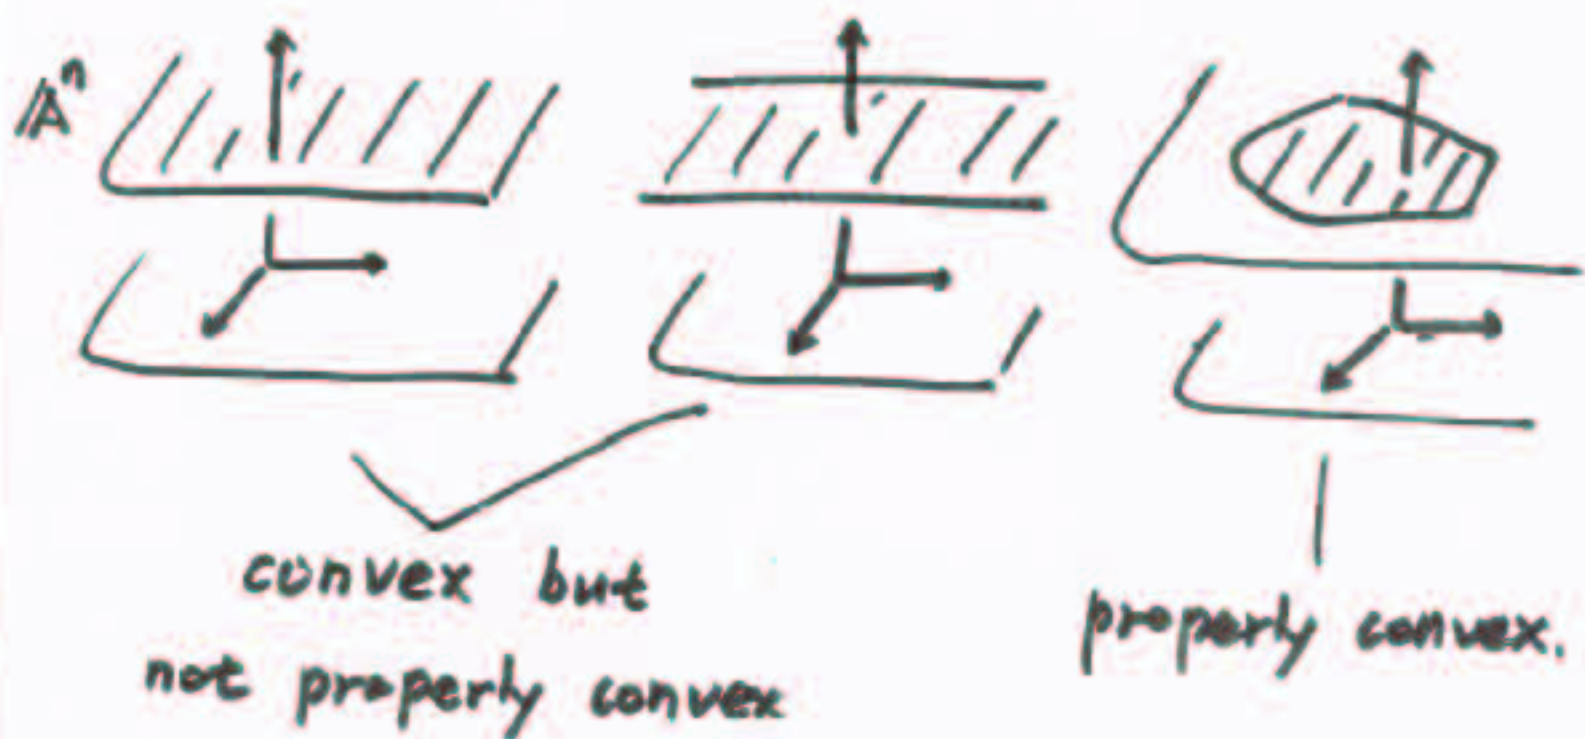 𝔸ⁿ
convex but
not properly convex
properly convex.